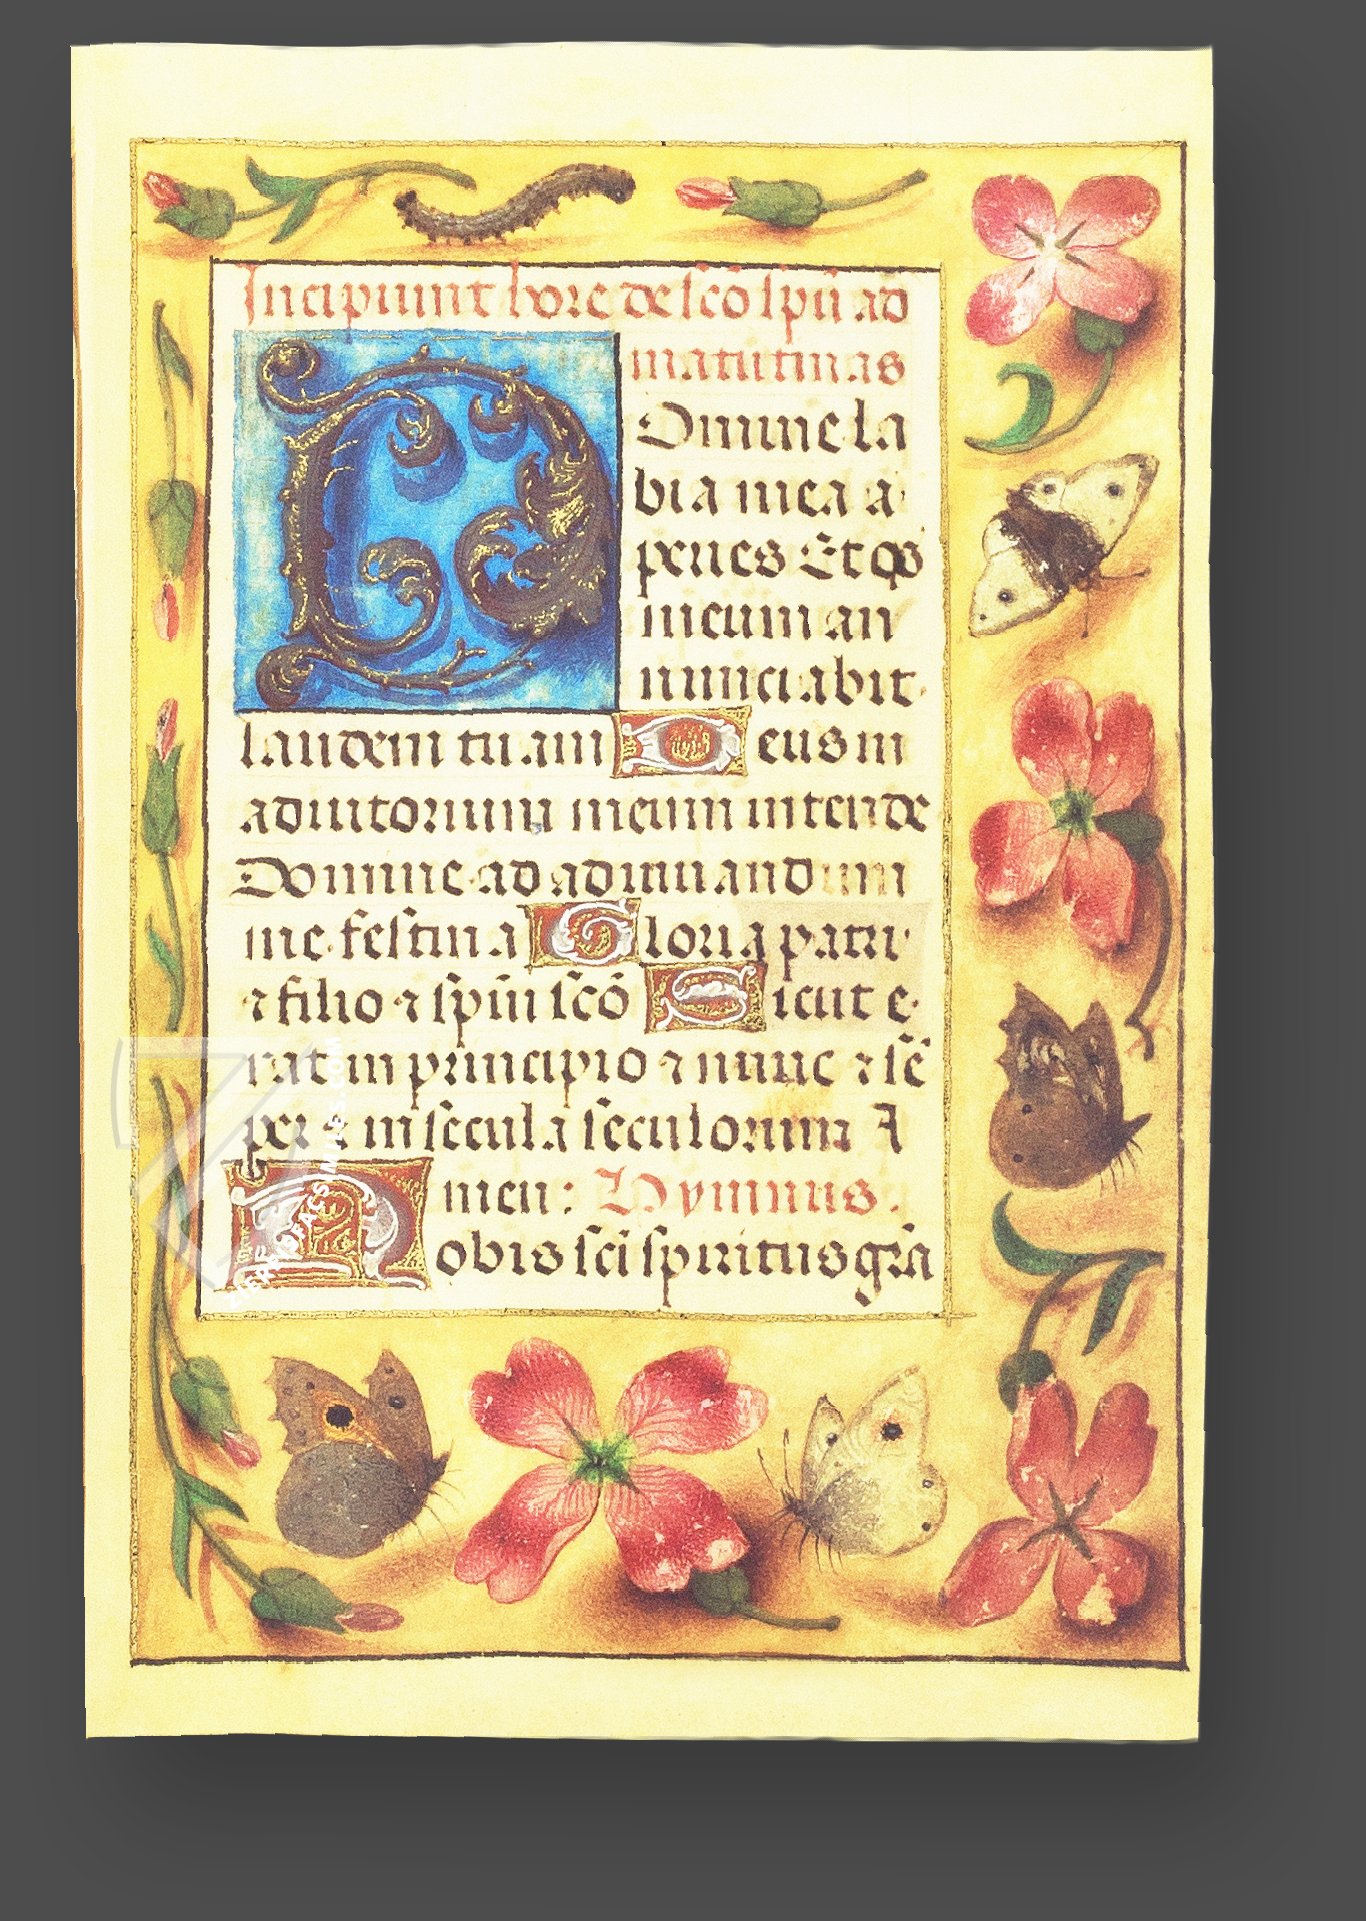 Incipiunt hore de scō spū ad
matutinas
Domine la
bia mea a
peries Et os
meum an
nunciabit
laudem tuam Deus in
adiutorium meum intende
Domine ad adiuuandum
me festina Gloria patri
⁊ filio ⁊ spūi scō Sicut e
rat in principio ⁊ nunc ⁊ sē
per ⁊ in secula seculorum A
men: Hymnus.
Nobis sci spiritus gr̄a